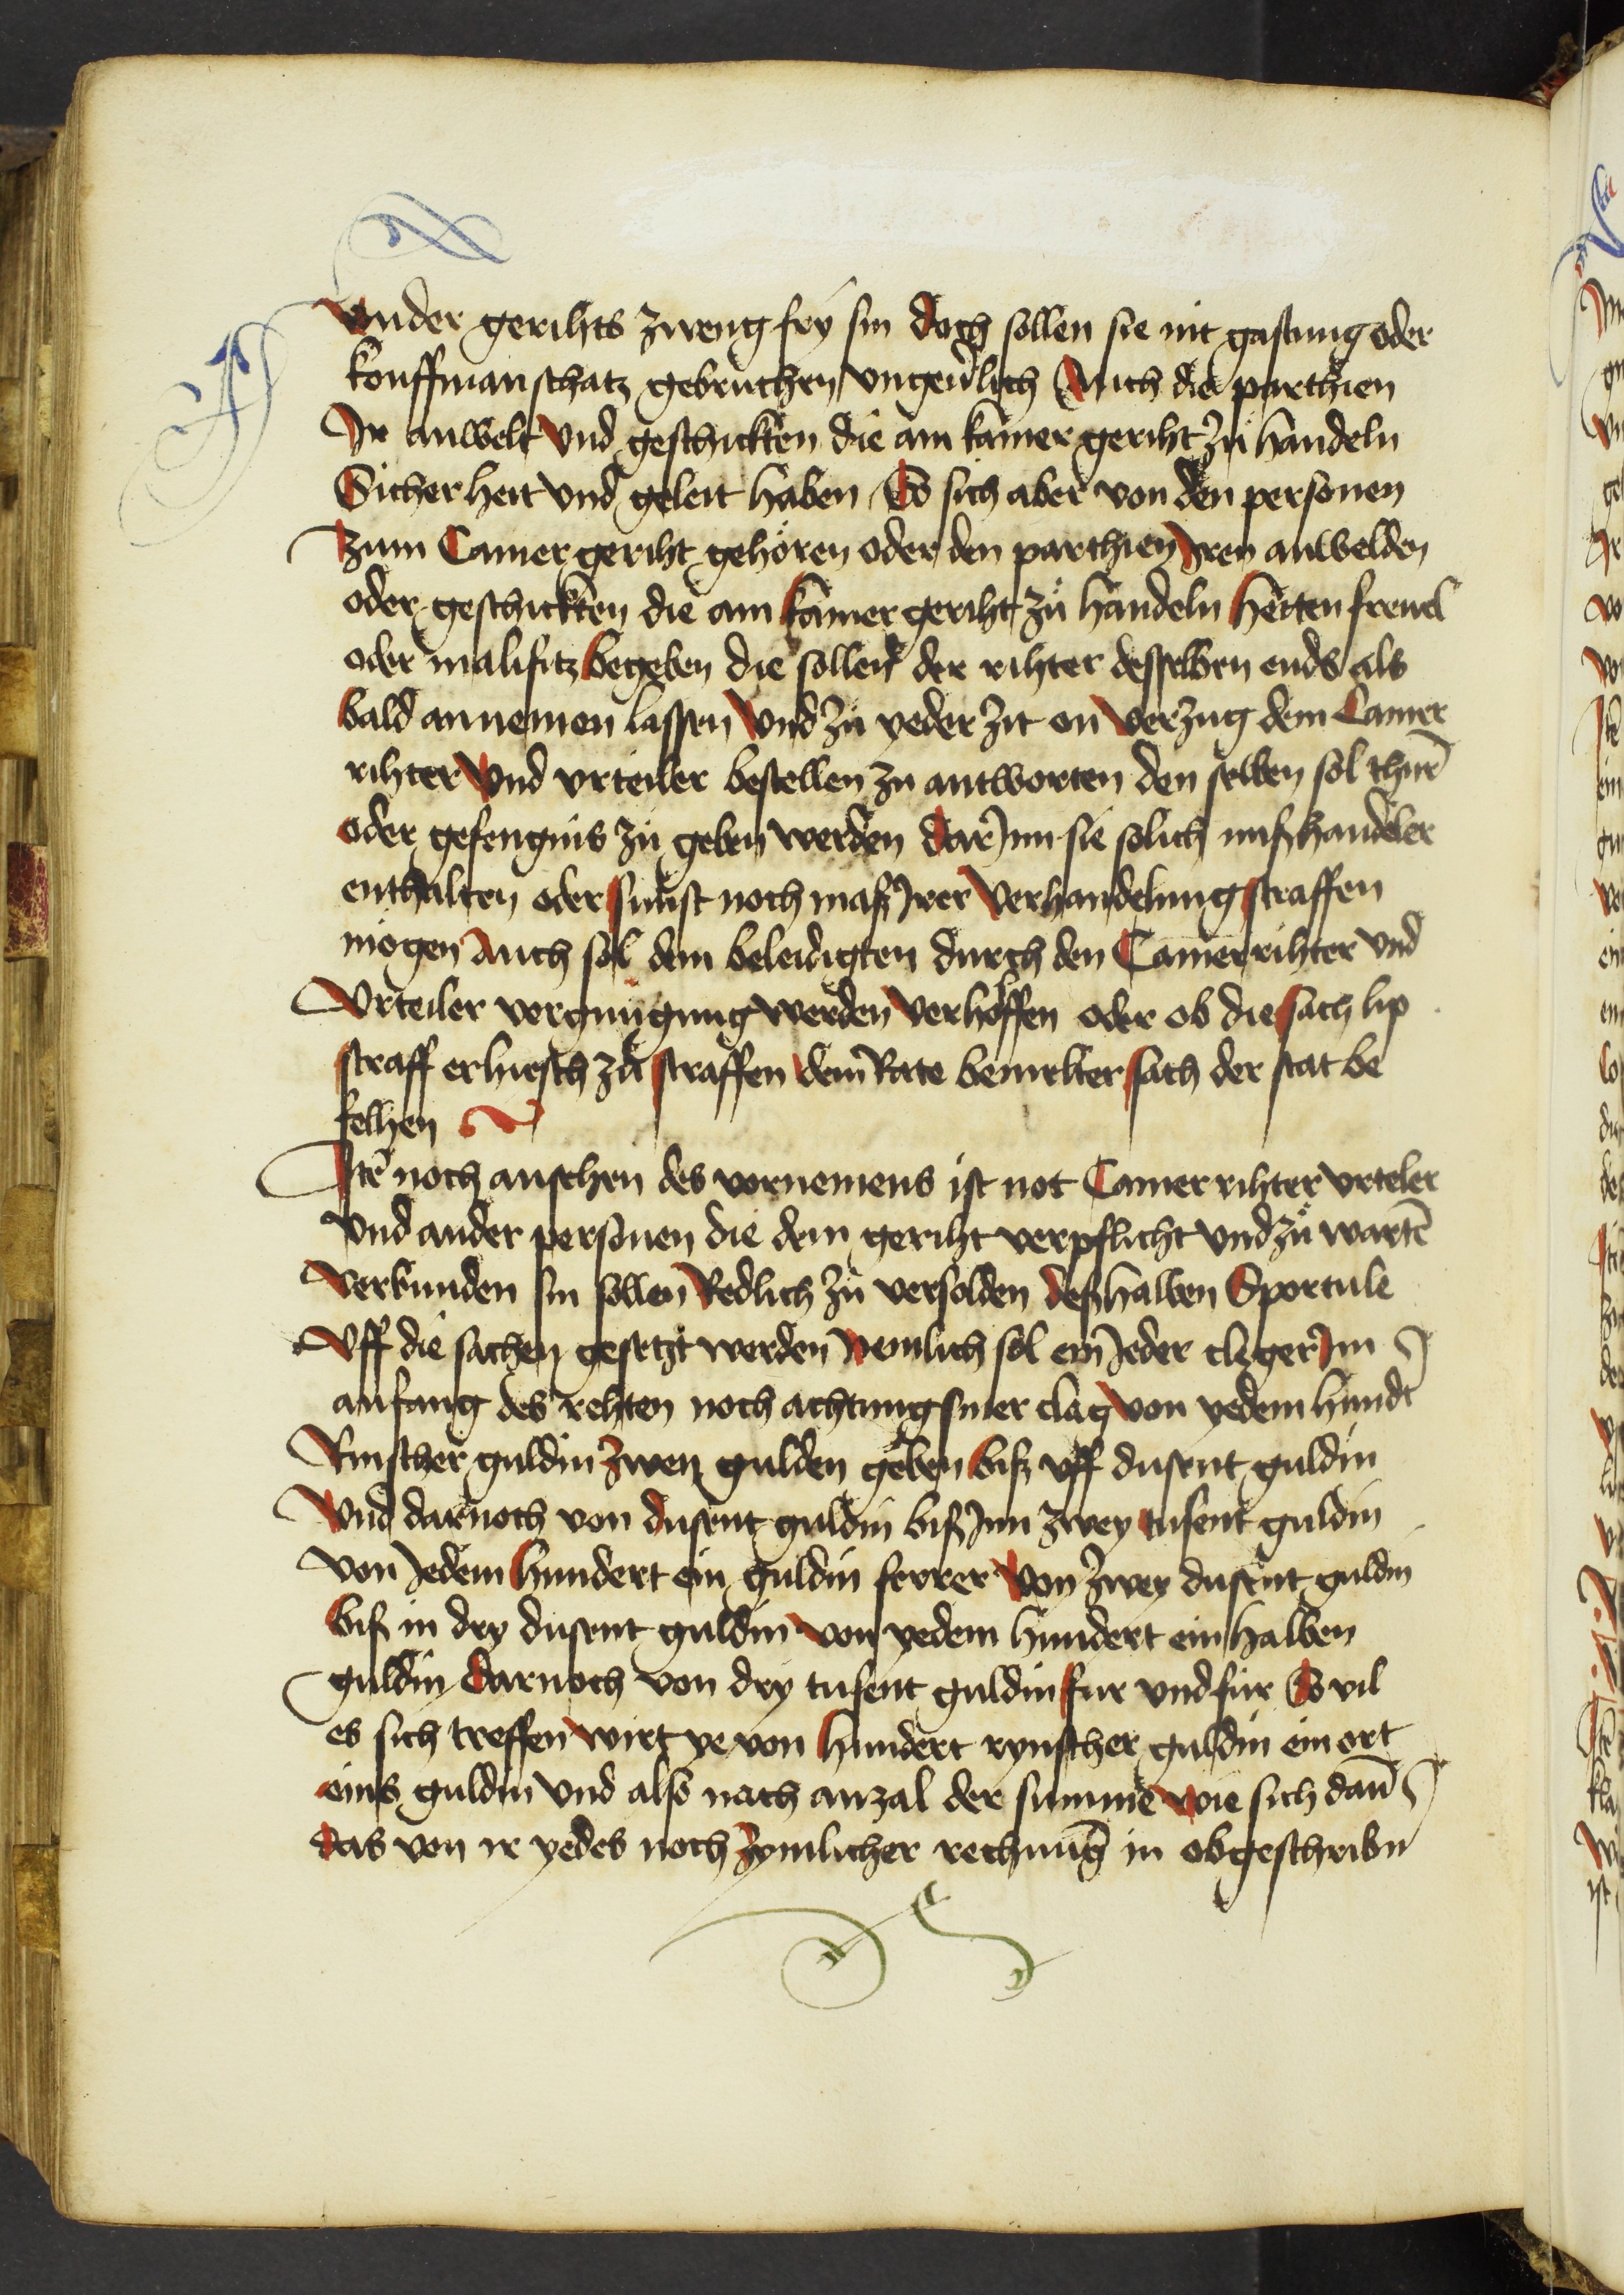 Vnder gerihts zweng fry sin doch sollen sie nit gastung oder
kouffmanschatz gebruchen vngeuͤrlich Auch die parthien
Ir anwelt vnd geschickten die am kamer geriht zuͦ handeln
Sicherheit vnd geleit haben So sich aber von den personen
Zum Camer geriht gehoͤren oder den parthien Iren anwelden
oder geschickten die am kamer geriht zuͦ handeln hetten freuel
oder malifitz begeben die sollent der rihter desselben ends als
bald annemen lassen vnd zuͦ yeder zit on verzug dem Camer
rihter vnd vrteiler bestellen zu antworten den selben sol thuͤrn̄
oder gefengnis zuͦ geben werden dar Inn sie solich mißhandeler
enthalten oder sunst noch maß Irer verhandelung straffen
moͤgen Auch sol dem beleidigten durch den Camerrihter vnd
Vrteiler vergnuͤgung werden verholffen oder ob die sach lip
straff erhiesch zuͦ straffen dem Rate bemelter sach der stat be
felhen
Itē noch ansehen des vornemens ist not Camer rihter vrteler
vnd ander personen die dem geriht verpflicht vnd zuͦ wartē
Verbunden sin sollen Redlich zuͦ versolden deßhalben Sportule
Vff die sachen gesetzt werden Nemlich sol ein Ieder cleger Im
anfang des rehten noch achtung siner clag von yedem hundt
Rinscher guldin zwen gulden geben biß vff dusent guldin
Vnd darnoch von dusent guldin biß Inn zwey tusent guldin
von Iedem hundert ein guldin ferrer von zwey dusent guldin
biß in dry dusent guldin von yedem hundert ein halben
guldin darnoch von dry tusent guldin fur vnd fur So vil
es sich treffen wirt ye von hundert rynscher guldin ein ort
eins guldin vnd also nach anzal der summe wie sich dan̄
das von ir yedes noch zymlicher rechnung in obgeschribn